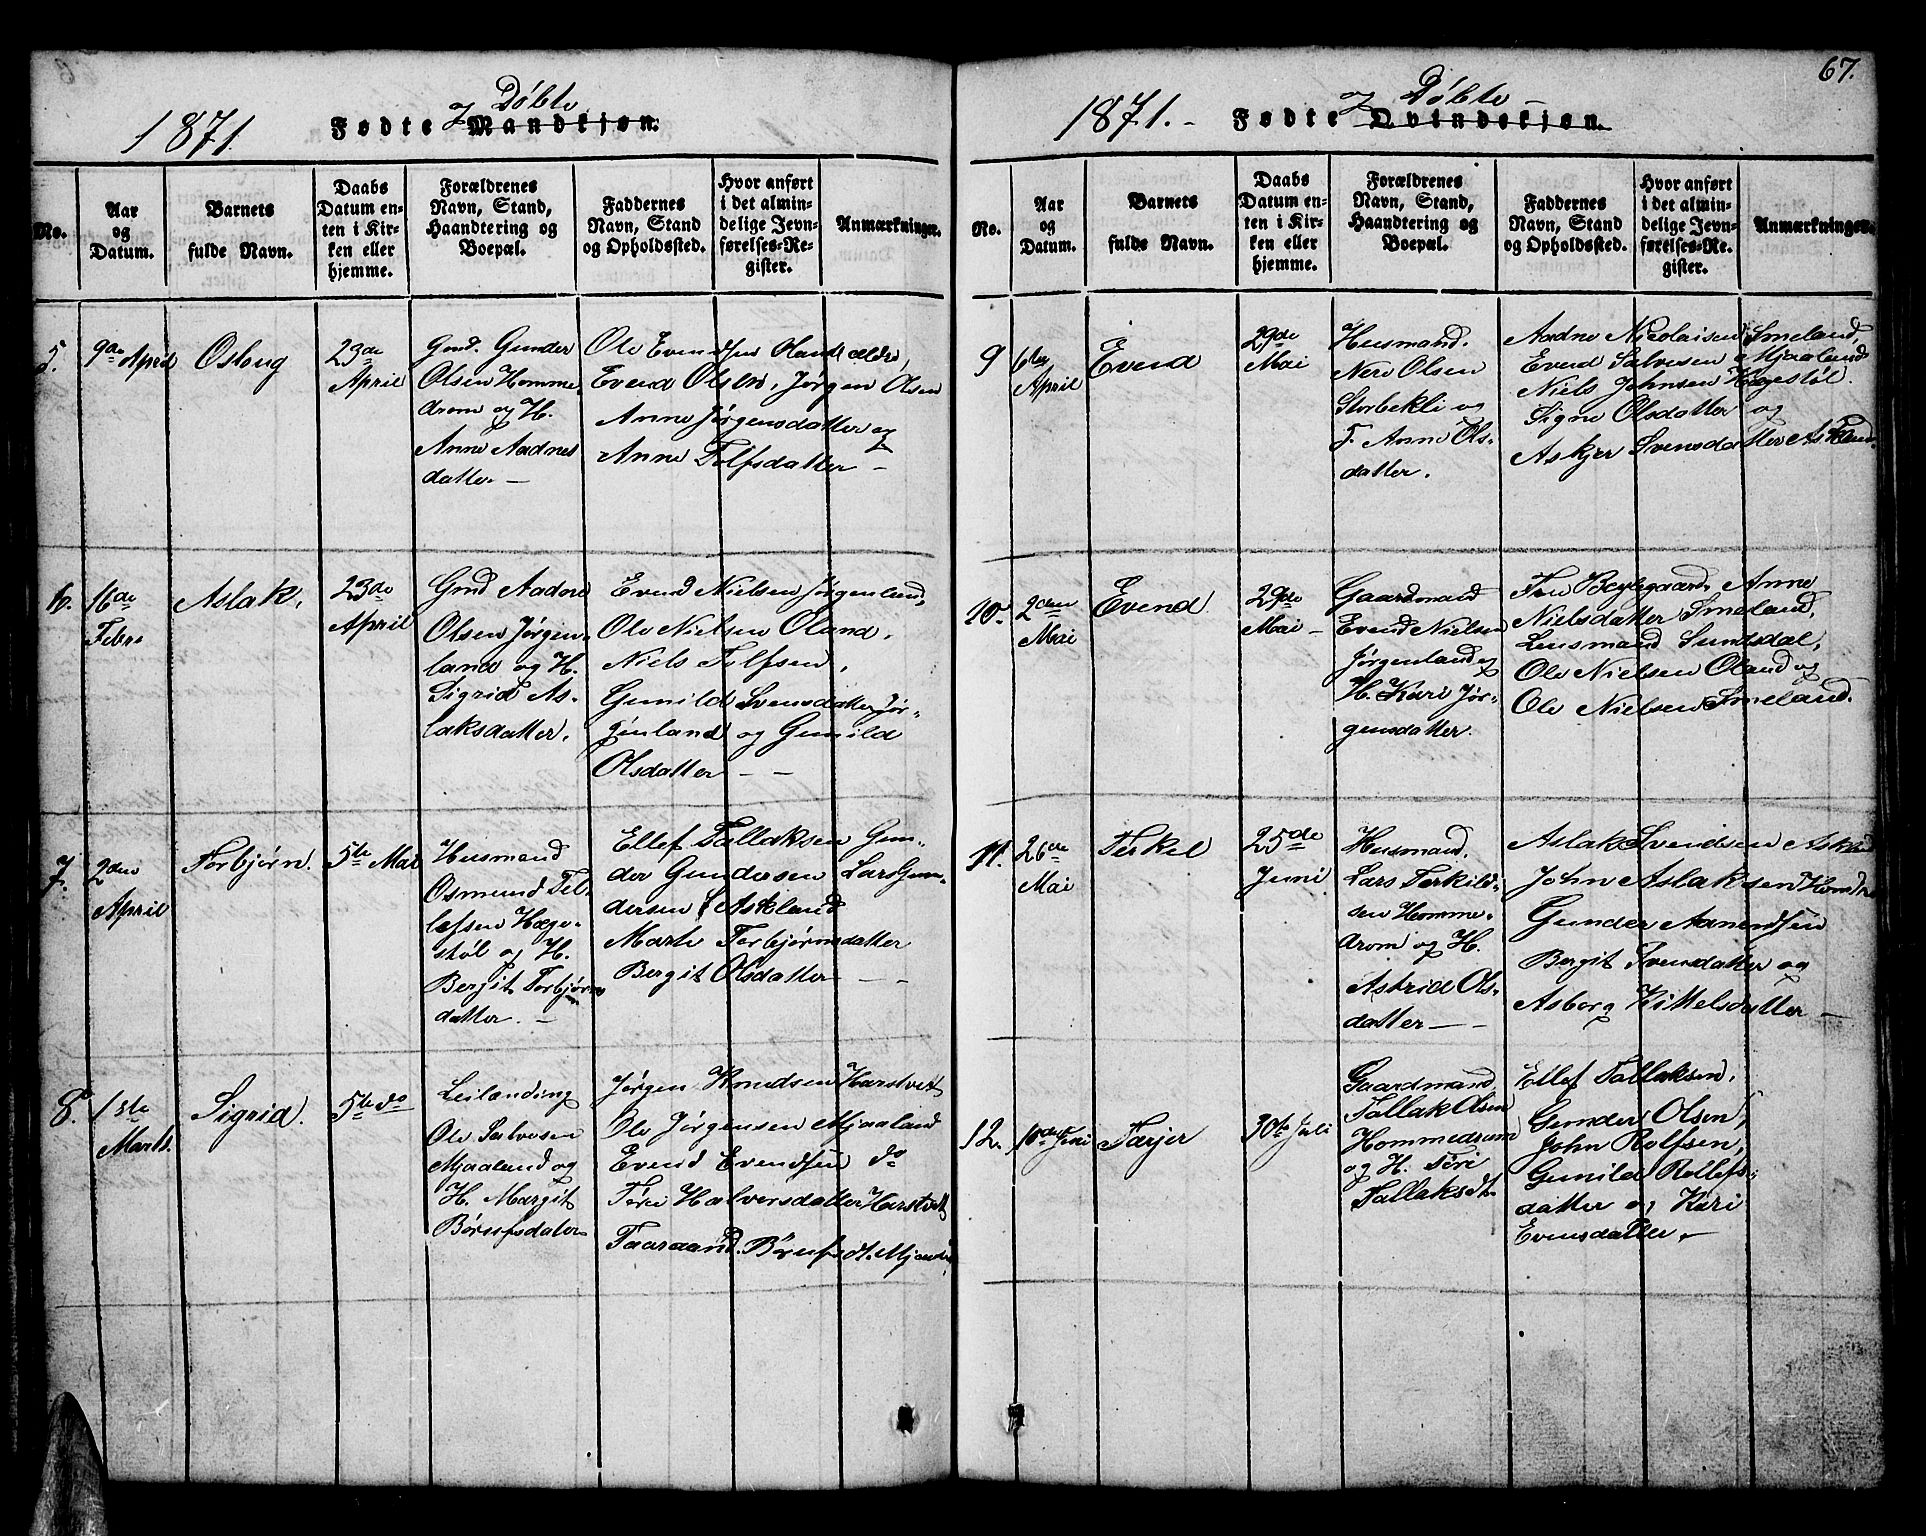 1871 Fødte og Døbte Mandkjøn.
No.
Aar
og
Datum.
Barnets
fulde Navn.
Daabs
Datum en-
ten i Kir-
ken eller
hjemme.
Forældrenes
Navn, Stand,
Haandtering og
Boepæl.
Faddernes
Navn, Stand
og Opholdssted.
Hvor anført
i det almin-
delige Jevn-
førelses-Re-
gister.
Anmærkninger.
5.
9de April
Oslaug
23de
April
Gmd. Gunder
Olsen Homme-
drom og H.
Anne Aadnes
datter. —
Ole Evendsen Oland ældre,
Evend Olsen, Jørgen Olsen
Anne Jørgensdatter og
Anne Tolfsdatter —
6.
16de
Febr.
Aslak,
23de
April
Gmd Aadne
Olsen Jørgen-
land og H.
Sigrid As-
laksdatter.
Evend Nielsen Jørgenland,
Ole Nielsen Oland,
Niels Tolfsen,
Gunild Svensdatter Jør-
genland og Gunild
Olsdatter — —
7.
2den
April
Torbjørn.
5te Mai
Husmand
Osmund Tel-
lefsen Hæge-
støl og H.
Bergit Torbjørns
datter. —
Ellef Tallaksen Gun-
der Gundersen Lars Gun-
dersen Askland
Marte Torbjørnsdatter
Bergit Olsdatter — —
8.
1ste
Marts.
Sigrid.
5te do
Leilænding
Ole Salvesen
Mjaaland og
H. Margit
Børufsdater
Jørgen Knudsen Harstvet
Ole Jørgensen Mjaaland
Evend Evendsen do
Tøre Halversdatter Harstvet
Taaraand Børufsdt. 
1871. - Fødte og Døbte Qvindekjøn.
67.
No.
Aar
og
Datum.
Barnets
fulde Navn.
Daabs
Datum en-
ten i Kir-
ken eller
hjemme.
Forældrenes
Navn, Stand,
Haandtering og
Boepæl.
Faddernes
Navn, Stand
og Opholdssted.
Hvor anført
i det almin-
delige Jevn-
førelses-Re-
gister.
Anmærkninger.
9
6te
April
Evend
29de
Mai
Husmand.
Neri Olsen
Storbekli og
F. Anne Ols-
datter.
Aadne Nicolaisen Smeland,
Evend Salvesen Mjaaland
Niels Johnsen Hægestøl.
Signe Olsdatter og
Askjer Svensdatter Askland
10.
2den
Mai
Evend.
29de
Mai —
Gaardmand
Evend Nielsen
Jørgenland og
H. Kari Jør-
gensdatter.
Fru Beylegaard, Anne
Nielsdatter Smeland,
Lensmand Sundsdal,
Ole Nielsen Oland og
Ole Nielsen Smeland.
11.
26de
Mai
Terkel
25de
Juni
Husmand.
Lars Terkild-
sen Homme-
drom og H.
Astrid Ols-
datter — —
Aslak Svendsen Askland
John Aslaksen
Gunder Aanendsen
Bergit Svensdatter og
Asborg Kittelsdatter —
12.
10de Juni
Tarjer
30te Juli
Gaardmand,
Tallak Olsen
Hommedrum
og H. Tøri
Tallaksdt.
Ellef Tallaksen,
Gunder Olsen,
John Rolfsen,
Gunild Rollefs-
datter og Kari
Evensdatter. —